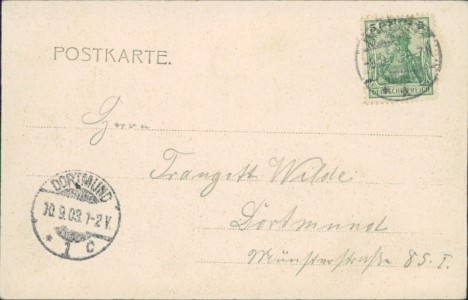 POSTKARTE.
Herrn
Traugott Wilde
Dortmund
Münsterstraße 85. I.
DORTMUND
10.9.03. 1-2 V.
* 1 c
DEUTSCHES REICH